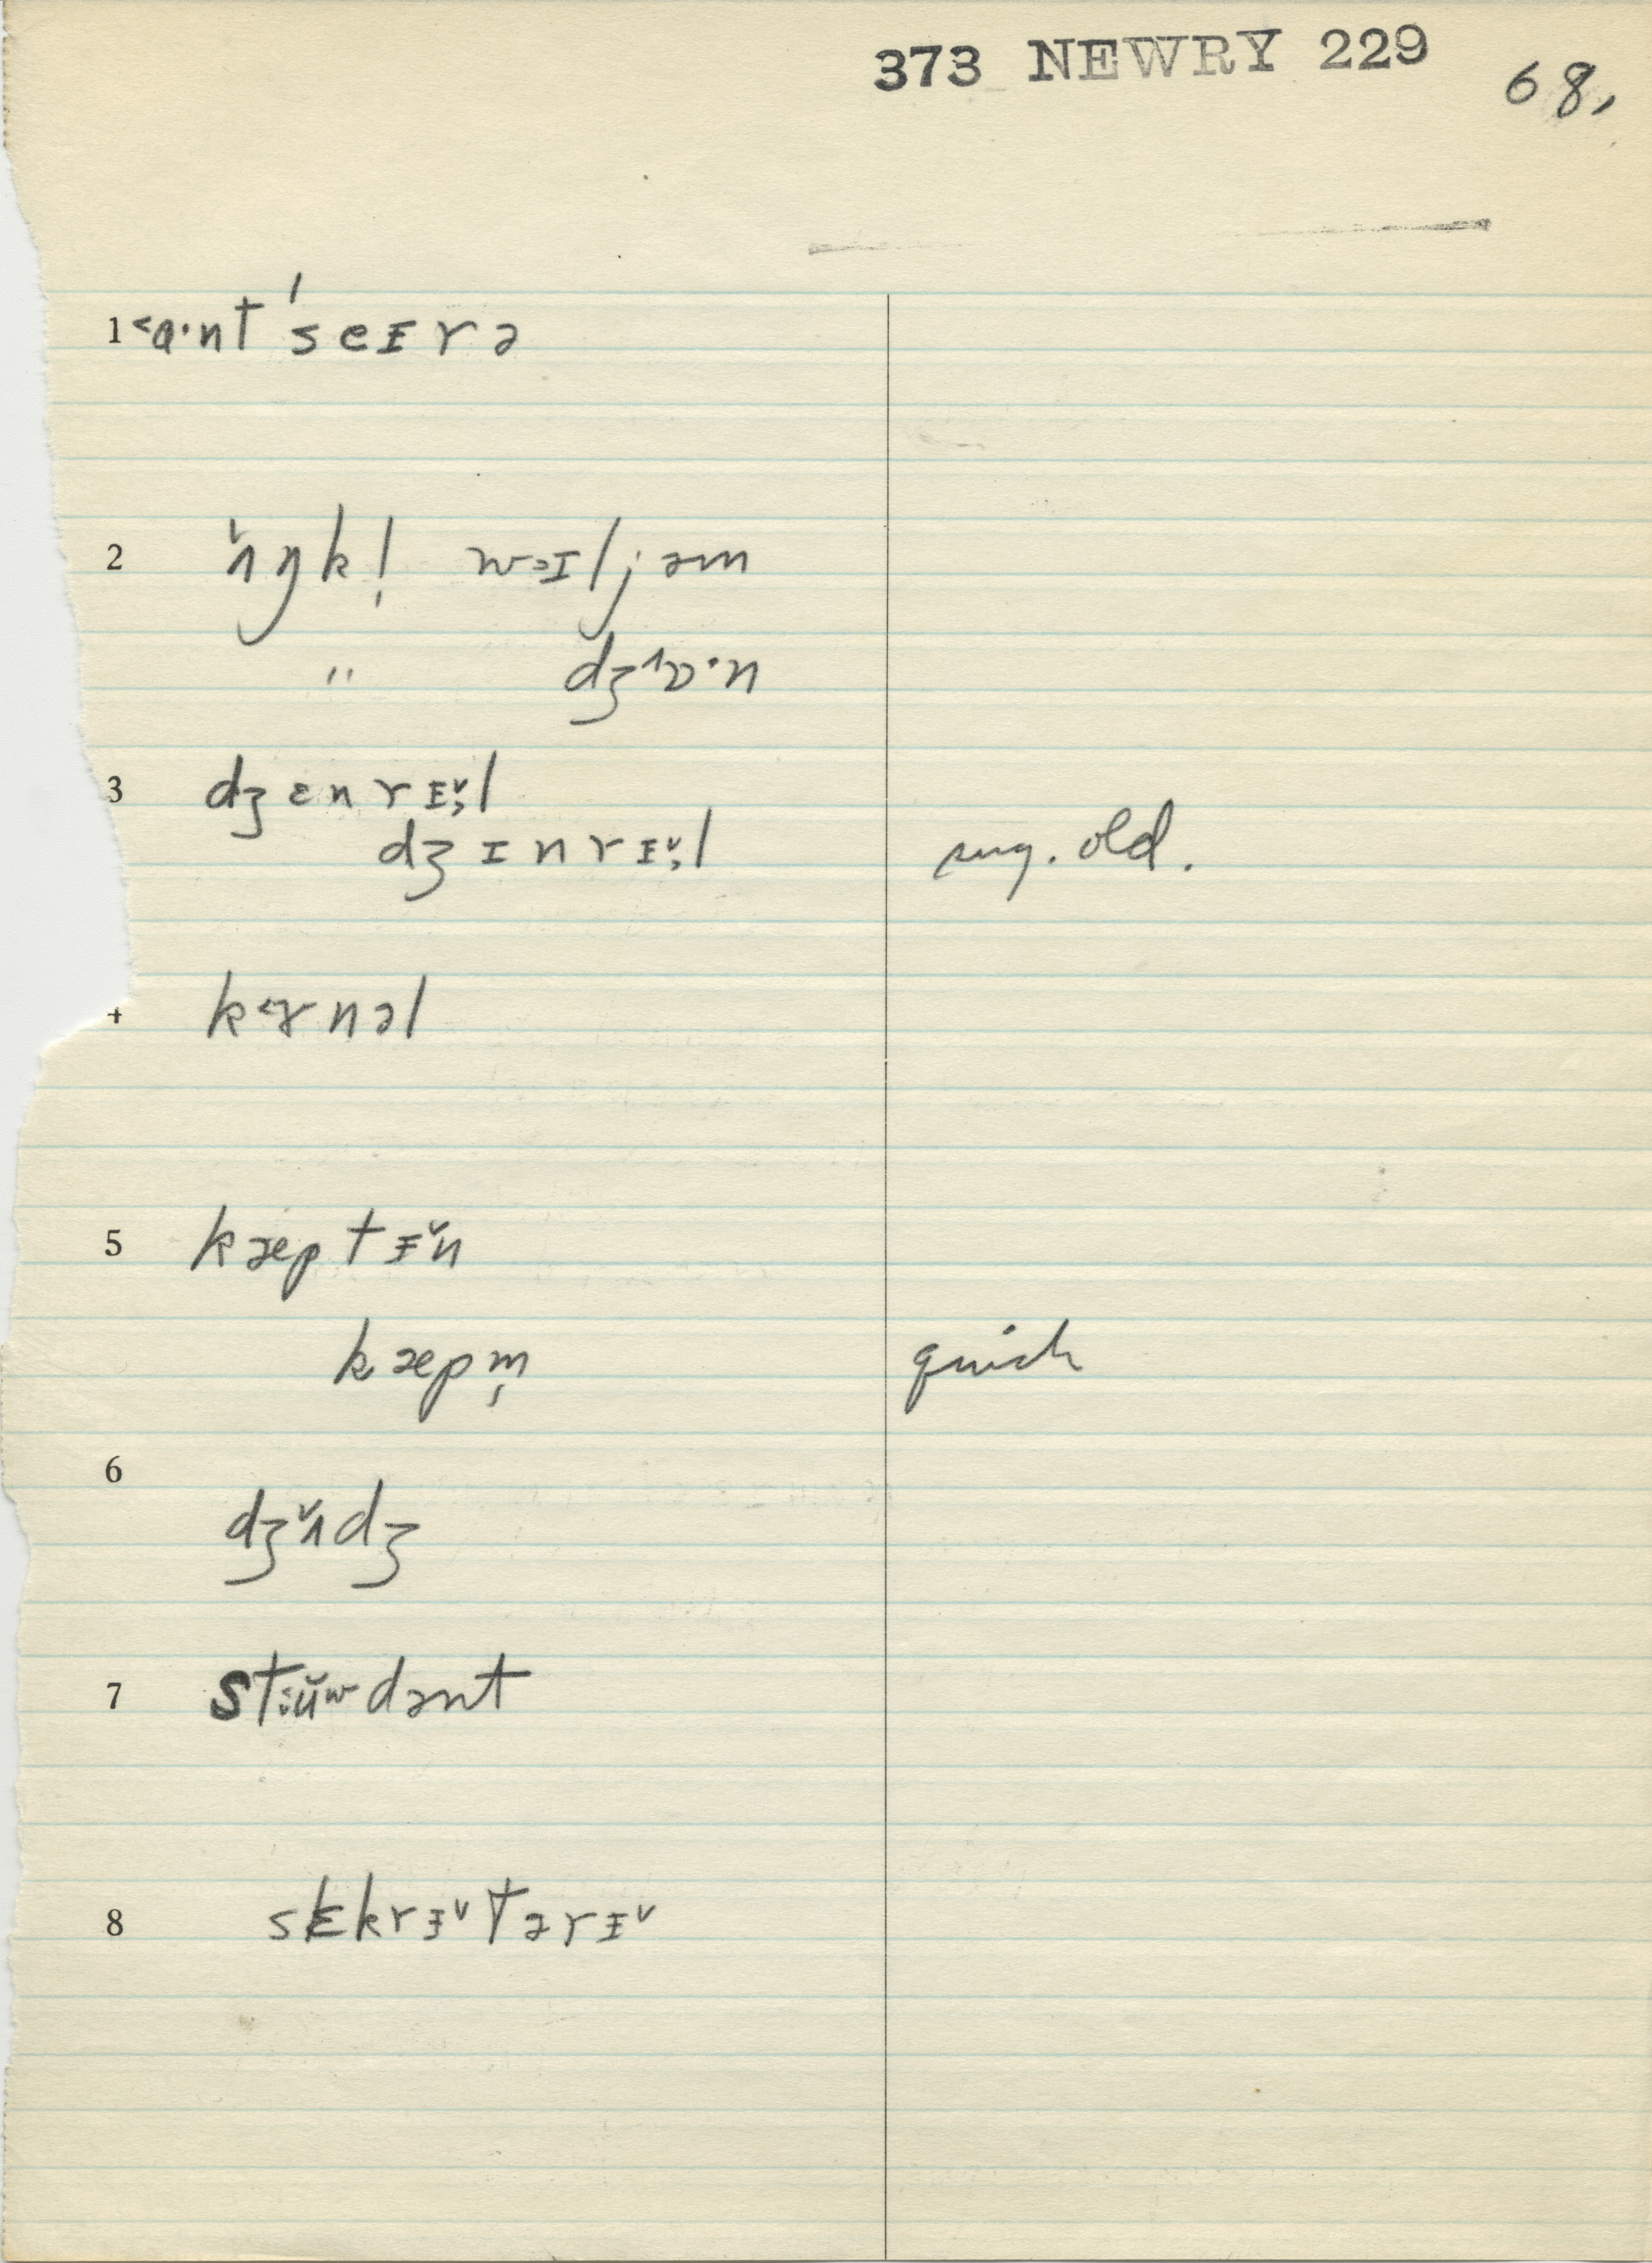 373 NEWRY 229 68,
1 <ɑ·nt 'seɪrə
2 ʌ̌ŋkl̩ wəɪljəm
" dʒ^ɒ·n
3 dʒɛnrɪ̌l
dʒɪnrɪ̌l sug. old.
4 k<ɝnəl
5 kæptɪ̌n
kæpm̩ quick
6
dʒʌ̌dʒ
7 stiǔʷdənt
8 sɛkrɪ̌tərɪ̌